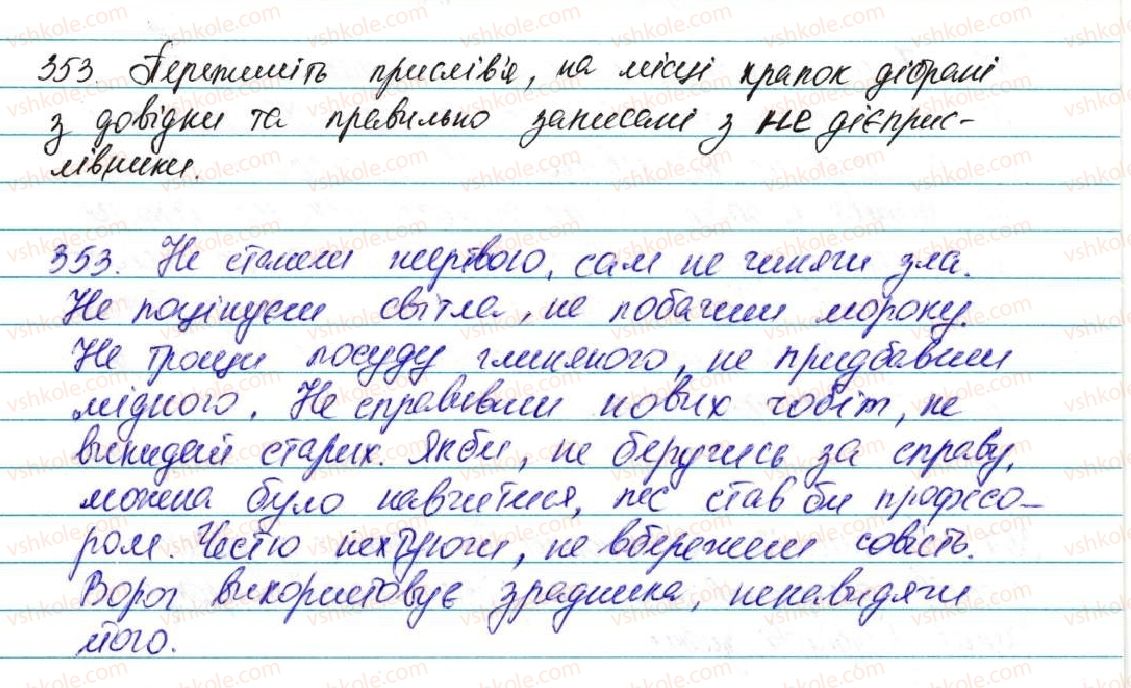 353. Перепишіть прислів'я, на місці крапок дібрані
з довідки та правильно записані з не дієприс-
лівники.
353. Не станеш жертвою, сам не чинячи зла.
Не поцінуєш світла, не побачивши мороку.
Не трощи посуду глиняного, не придбавши
мідного. Не справивши нових чобіт, не
викидай старих. Якби, не беручись за справу,
можна було навчитися, пес став би професо-
ром. Честю нехтуючи, не вбережеш совість.
Ворог використовує зрадника, ненавидячи
його.
vshkole.com